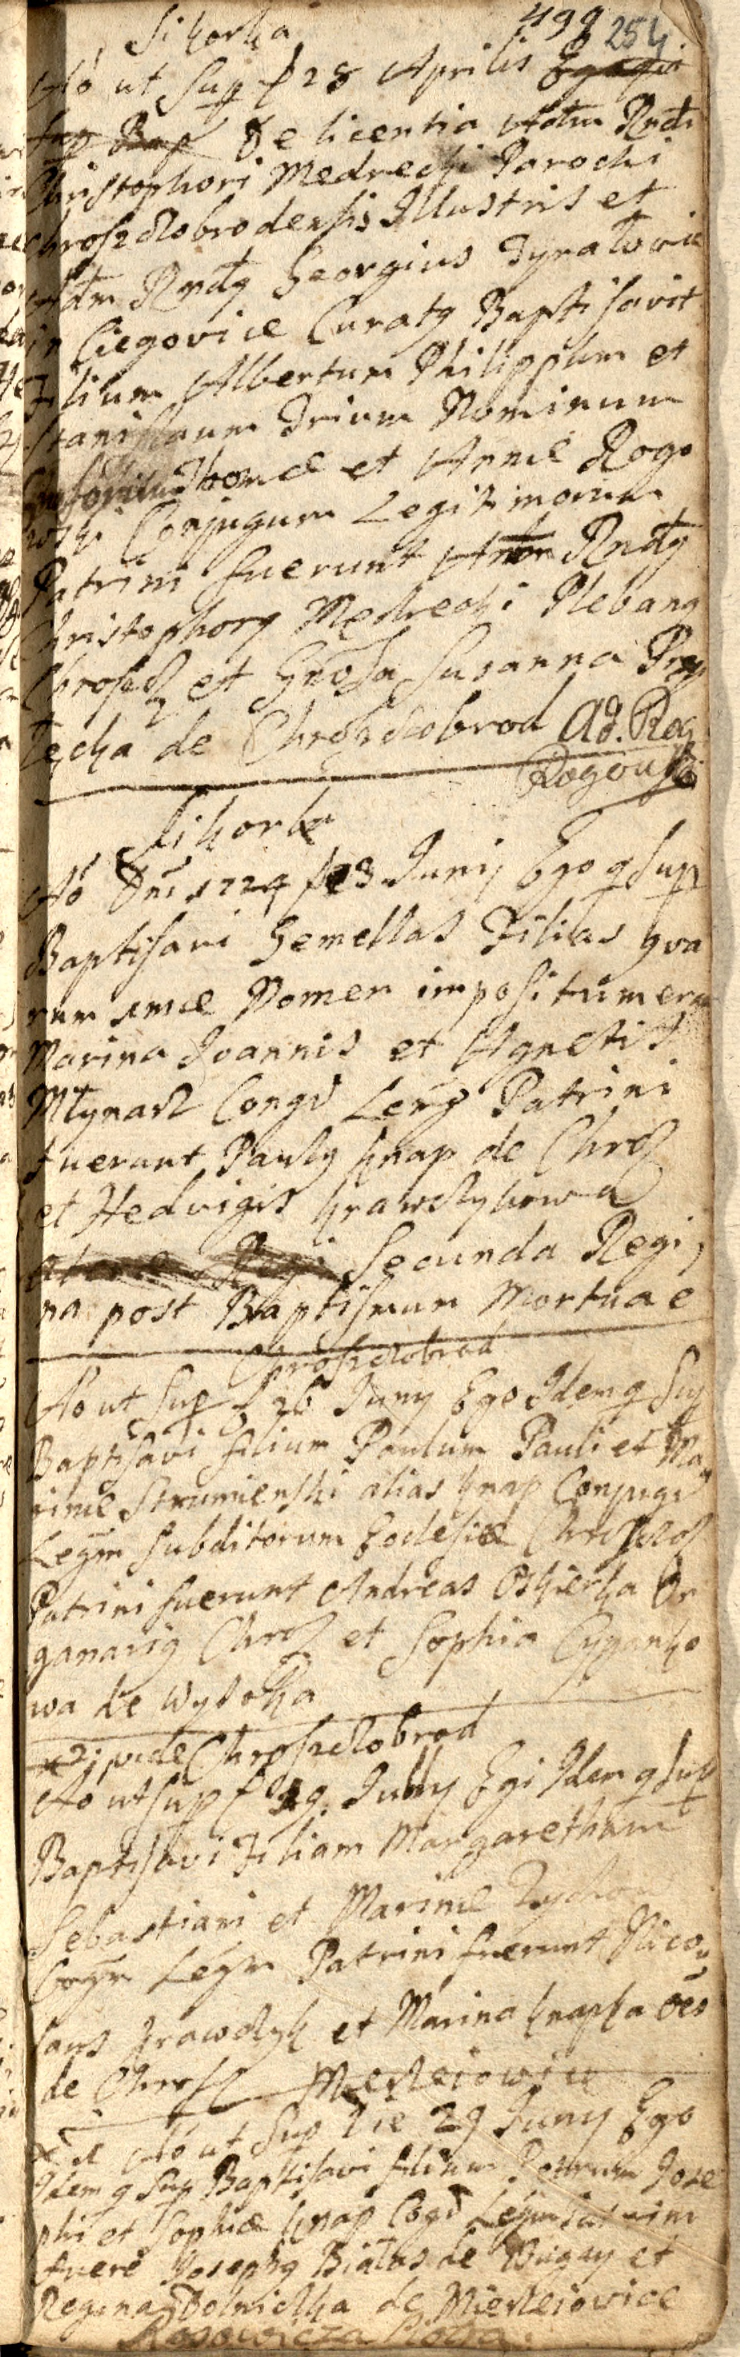 499 254
Sikorka
Ao ut Sup d 28 Aprilis Ego qui
Sup Bap De licentia Adm Rndi
Christophori Medrecki Parochi
Chroszczobrodensis Illustris et
Adm Rndq Georgius
in Ciegovice Curatq Baptisavit
Filium Albertum Philippum et
Stanislaum Trium Nominum
Thomæ et Annæ Rogo
wski Conjugum Legitimorum
Patrini fuerunt Adm Rndq
Christophorq Medrecki Plebanq
Chroscz et Gnosa Susanna
de Chroszczobrod Ad. Rog
Rogowski
Sikorka
Ao Dni 1724 d 23 Junij Ego q Sup
Baptisavi Gemellas Filias qva
rum unæ Nomen impositum erat
Marina Joannis et Agnetis
Młynarz Congu Leg Patrini
fuerunt Paulq Knap de Chros
et Hedvigis Krawczykowa
Secunda Regi,
na post Baptismum Mortuae
Chroszczobrod
Ao ut Sup d 26 Juny Ego Idem q Sup
Baptisavi filium Paulum Pauli et Ma,
rinæ Strumienski alias Knap Conjugu
Legm Subditorum Ecclesiæ
Patrini fuerunt Andreas Oskierka Or
ganariq Chros et Sophia Cyganko
wa de Wysoka
x 2; vide Chroszczobrod
Ao ut sup d 29. Juny Egi Idem q Sup
Baptisavi Filiam Margaretham
Sebastiani et Marinæ
Congm Legm Patrini fuerunt Nico,
laus Krawczyk et Marina Knapka oes
de Chros
Mierzeiowice
x 1 Ao ut Sup die 29 Juny Ego
Idem q Sup Baptisavi filium Petrum Jose
phi et Sophiæ Knap Cogu Legm Patrini
fuere Josephq Białas de Wugay et
Regina Dolniczka de Mierzeiowice